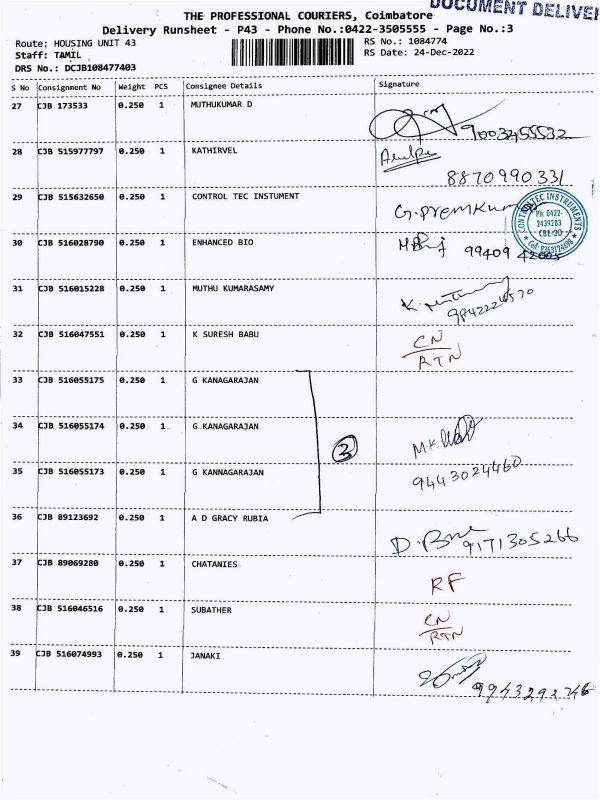 DOCUMENT DELIVER
THE PROFESSIONAL COURIERS, Coimbatore
Delivery Runsheet - P43 - Phone No.:0422-3505555 - Page No.:3
Route: HOUSING UNIT 43 RS No.: 1084774
Staff: TAMIL RS Date: 24-Dec-2022
DRS No.: DCJB108477403
S No Consignment No Weight PCS Consignee Details Signature
27 CJB 173533 0.250 1 MUTHUKUMAR D
9003455532
28 CJB 515977797 0.250 1 KATHIRVEL
8870990331
29 CJB 515632650 0.250 1 CONTROL TEC INSTUMENT G.Premkumar
CONTROL TEC INSTRUMENTS
Ph: 0422-
2439283
CBE-30
30 CJB 516028790 0.250 1 ENHANCED BIO 99409 42005
31 CJB 516015228 0.250 1 MUTHU KUMARASAMY
32 CJB 516047551 0.250 1 K SURESH BABU CN
RTN
33 CJB 516055175 0.250 1 G KANAGARAJAN
34 CJB 516055174 0.250 1 G KANAGARAJAN
35 CJB 516055173 0.250 1 G KANNAGARAJAN 9443024460
36 CJB 89123692 0.250 1 A D GRACY RUBIA
9171305266
37 CJB 89069280 0.250 1 CHATANIES RF
38 CJB 516046516 0.250 1 SUBATHER CN
RTN
39 CJB 516074993 0.250 1 JANAKI
9943292746